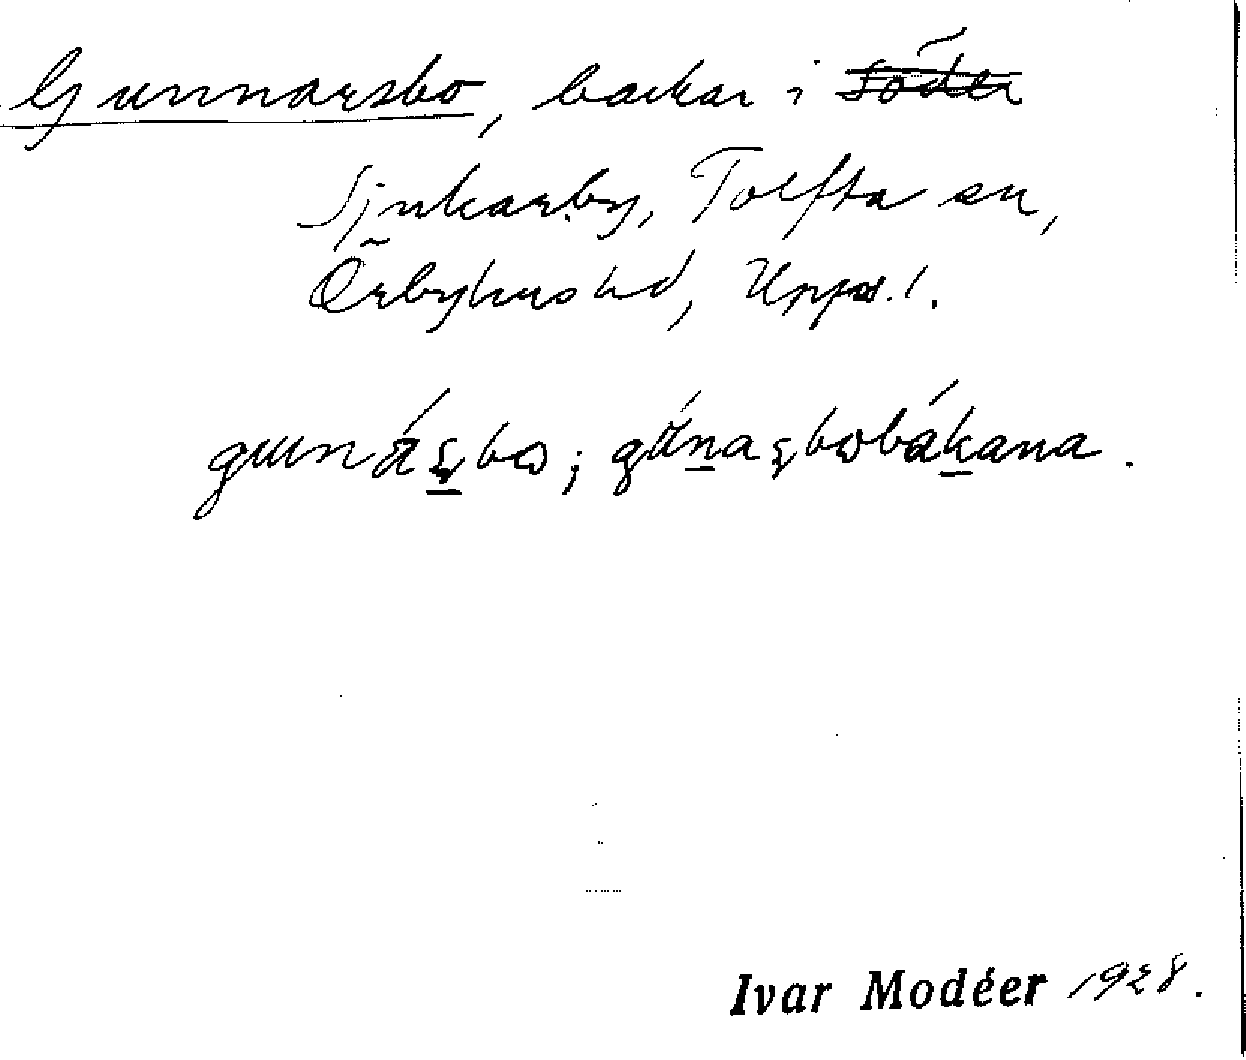 Gunnarsbo, backar i Söder
Sjukarby, Tolfta sn,
Örbyhus hd, Upps. l.
gunáʂbω; gúnaʂbωbákana.
Ivar Modéer 1928.